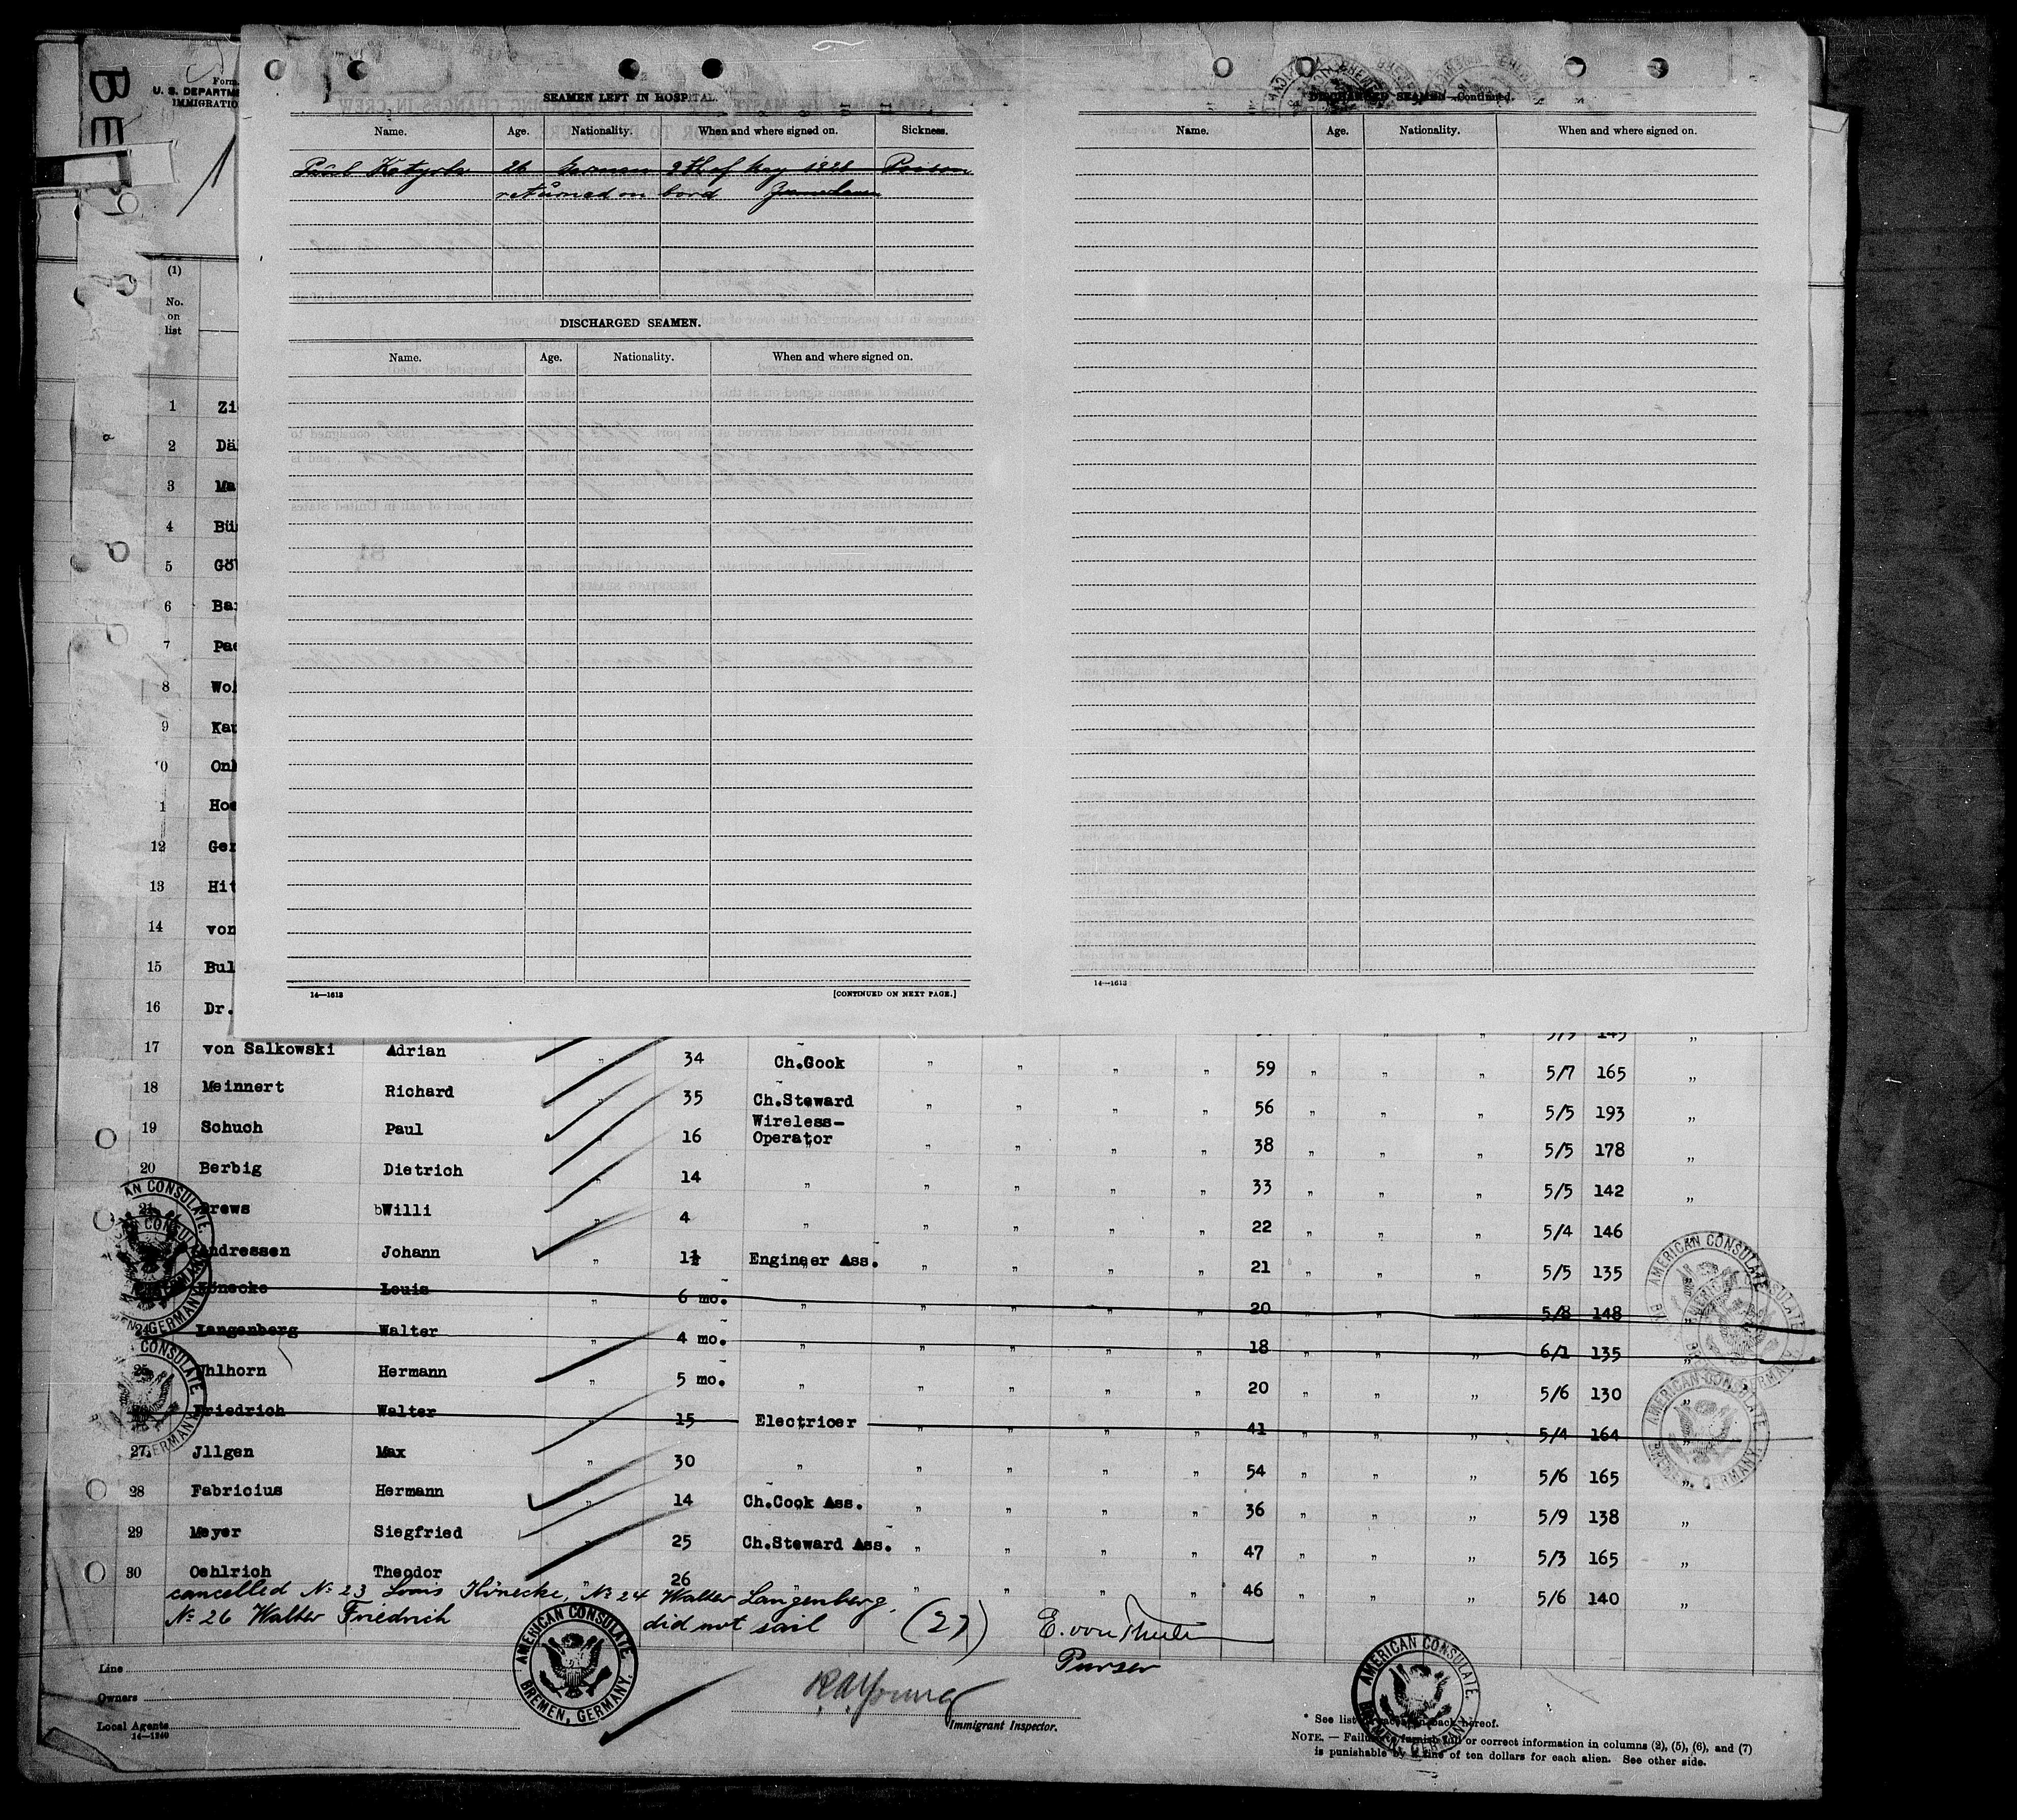 BE
Form
U. S. DEPARTME
IMMIGRATIO
1
(1)
No.
on
list
SEAMEN LEFT IN HOSPITAL.
Name. Age. Nationality. When and where signed on. Sickness.
Paul 26 German 9th of May 1928 Poison
returned on bord
DISCHARGED SEAMEN.
Name. Age. Nationality. When and where signed on.
14—1613 [CONTINUED ON NEXT PAGE.]
DISCHARGED SEAMEN—Continued.
Name. Age. Nationality. When and where signed on.
14—1613
1 Zi
2 Dä
3 Ma
4 Bü
5 Gö
6 Ba
7 Pa
8 Wo
9 Ka
0 On
1 Ho
12 Ger
13 Hit
14 von
15 Bul
16 Dr. 5/9 145 "
17 von Salkowski Adrian " 34 Ch.Cook " " " " 59 " " " 5/7 165 "
18 Meinnert Richard " 35 Ch.Steward " " " " 56 " " " 5/5 193 "
19 Schuch Paul " 16 Wireless-
Operator " " " " 38 " " " 5/5 178 "
20 Berbig Dietrich 14 " " " " " 33 " " " 5/5 142 "
21 Drews Willi " 4 " " " " " 22 " " " 5/4 146
Andressen Johann " 1½ Engineer Ass. " " " " 21 " " " 5/5 135
Könecke Louis " 6 mo. " " " " " 20 " " " 5/8 148
24 Langenberg Walter " 4 mo. " " " " " 18 " " " 6/1 135 "
25 Uhlhorn Hermann " 5 mo. " " " " " 20 " " " 5/6 130
Friedrich Walter " 15 Electricer " " " " 41 " " " 5/4 164
27 Jllgen Max " 30 " " " " " 54 " " " 5/6 165 "
28 Fabricius Hermann " 14 Ch.Cook Ass. " " " " 36 " " " 5/9 138 "
29 Meyer Siegfried " 25 Ch.Steward Ass. " " " " 47 " " " 5/3 165 "
30 Oehlrich Theodor " 26 " " " " " 46 " " " 5/6 140 "
cancelled No 23 Louis Könecke, No 24 Walter Langenberg,
No 26 Walter Friedrich did not sail (27)
Purser
Line
Owners
Local Agents
14—1240
Immigrant Inspector.
AMERICAN CONSULATE
BREMEN, GERMANY.
AMERICAN CONSULATE
* See list of races on back hereof.
NOTE. — Failure to furnish full or correct information in columns (2), (5), (6), and (7)
is punishable by a fine of ten dollars for each alien. See other side.
AMERICAN CONSULATE
AMERICAN CONSULATE
BREMEN, GERMANY.